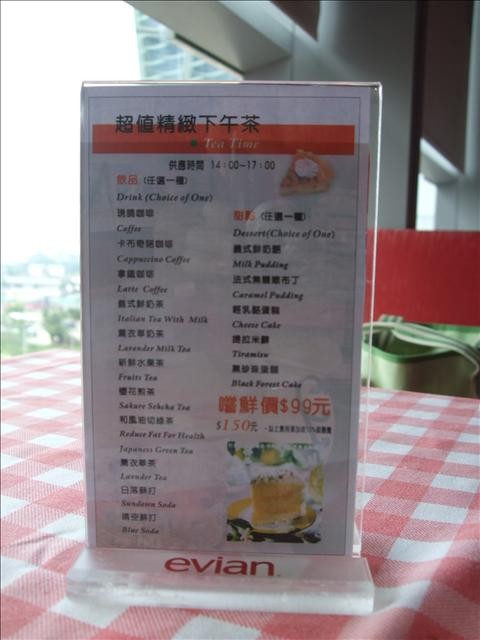 超值精緻下午茶
Tea Time
供應時間 14：00~17：00
飲品 (任選一種)
Drink (Choice of One)
現磨咖啡
Coffee
卡布奇諾咖啡
Cappuccino Coffee
拿鐵咖啡
Latte Coffee
義式鮮奶茶
Italian Tea With Milk
薰衣草奶茶
Lavender Milk Tea
新鮮水果茶
Fruits Tea
櫻花煎茶
Sakure Sehcha Tea
和風油切綠茶
Reduce Fat For Health
Japaness Green Tea
薰衣草茶
Lavnder Tea
日落蘇打
Sundown Soda
晴空蘇打
Blue Soda
甜點 (任選一種)
Dessert(Choice of One)
義式鮮奶酪
Milk Pudding
法式焦糖嫩布丁
Caramel Pudding
輕乳酪蛋糕
Cheese Cake
提拉米蘇
Tiramisu
黑森林蛋糕
Black Forest Cake
嚐鮮價$99元
$150元
evian